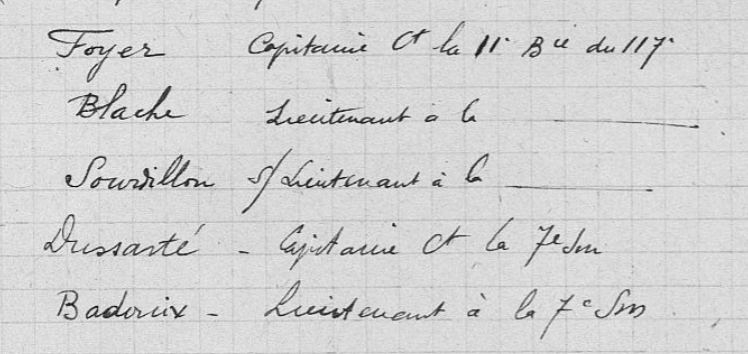 Foyer Capitaine Ct la 11e Bie du 117e
Blache Lieutenant à la ———
Sourdillon s/Lieutenant à la ———
Dussarté - Capitaine Ct la 7e Sm
Badorix - Lieutenant à la 7e Sm